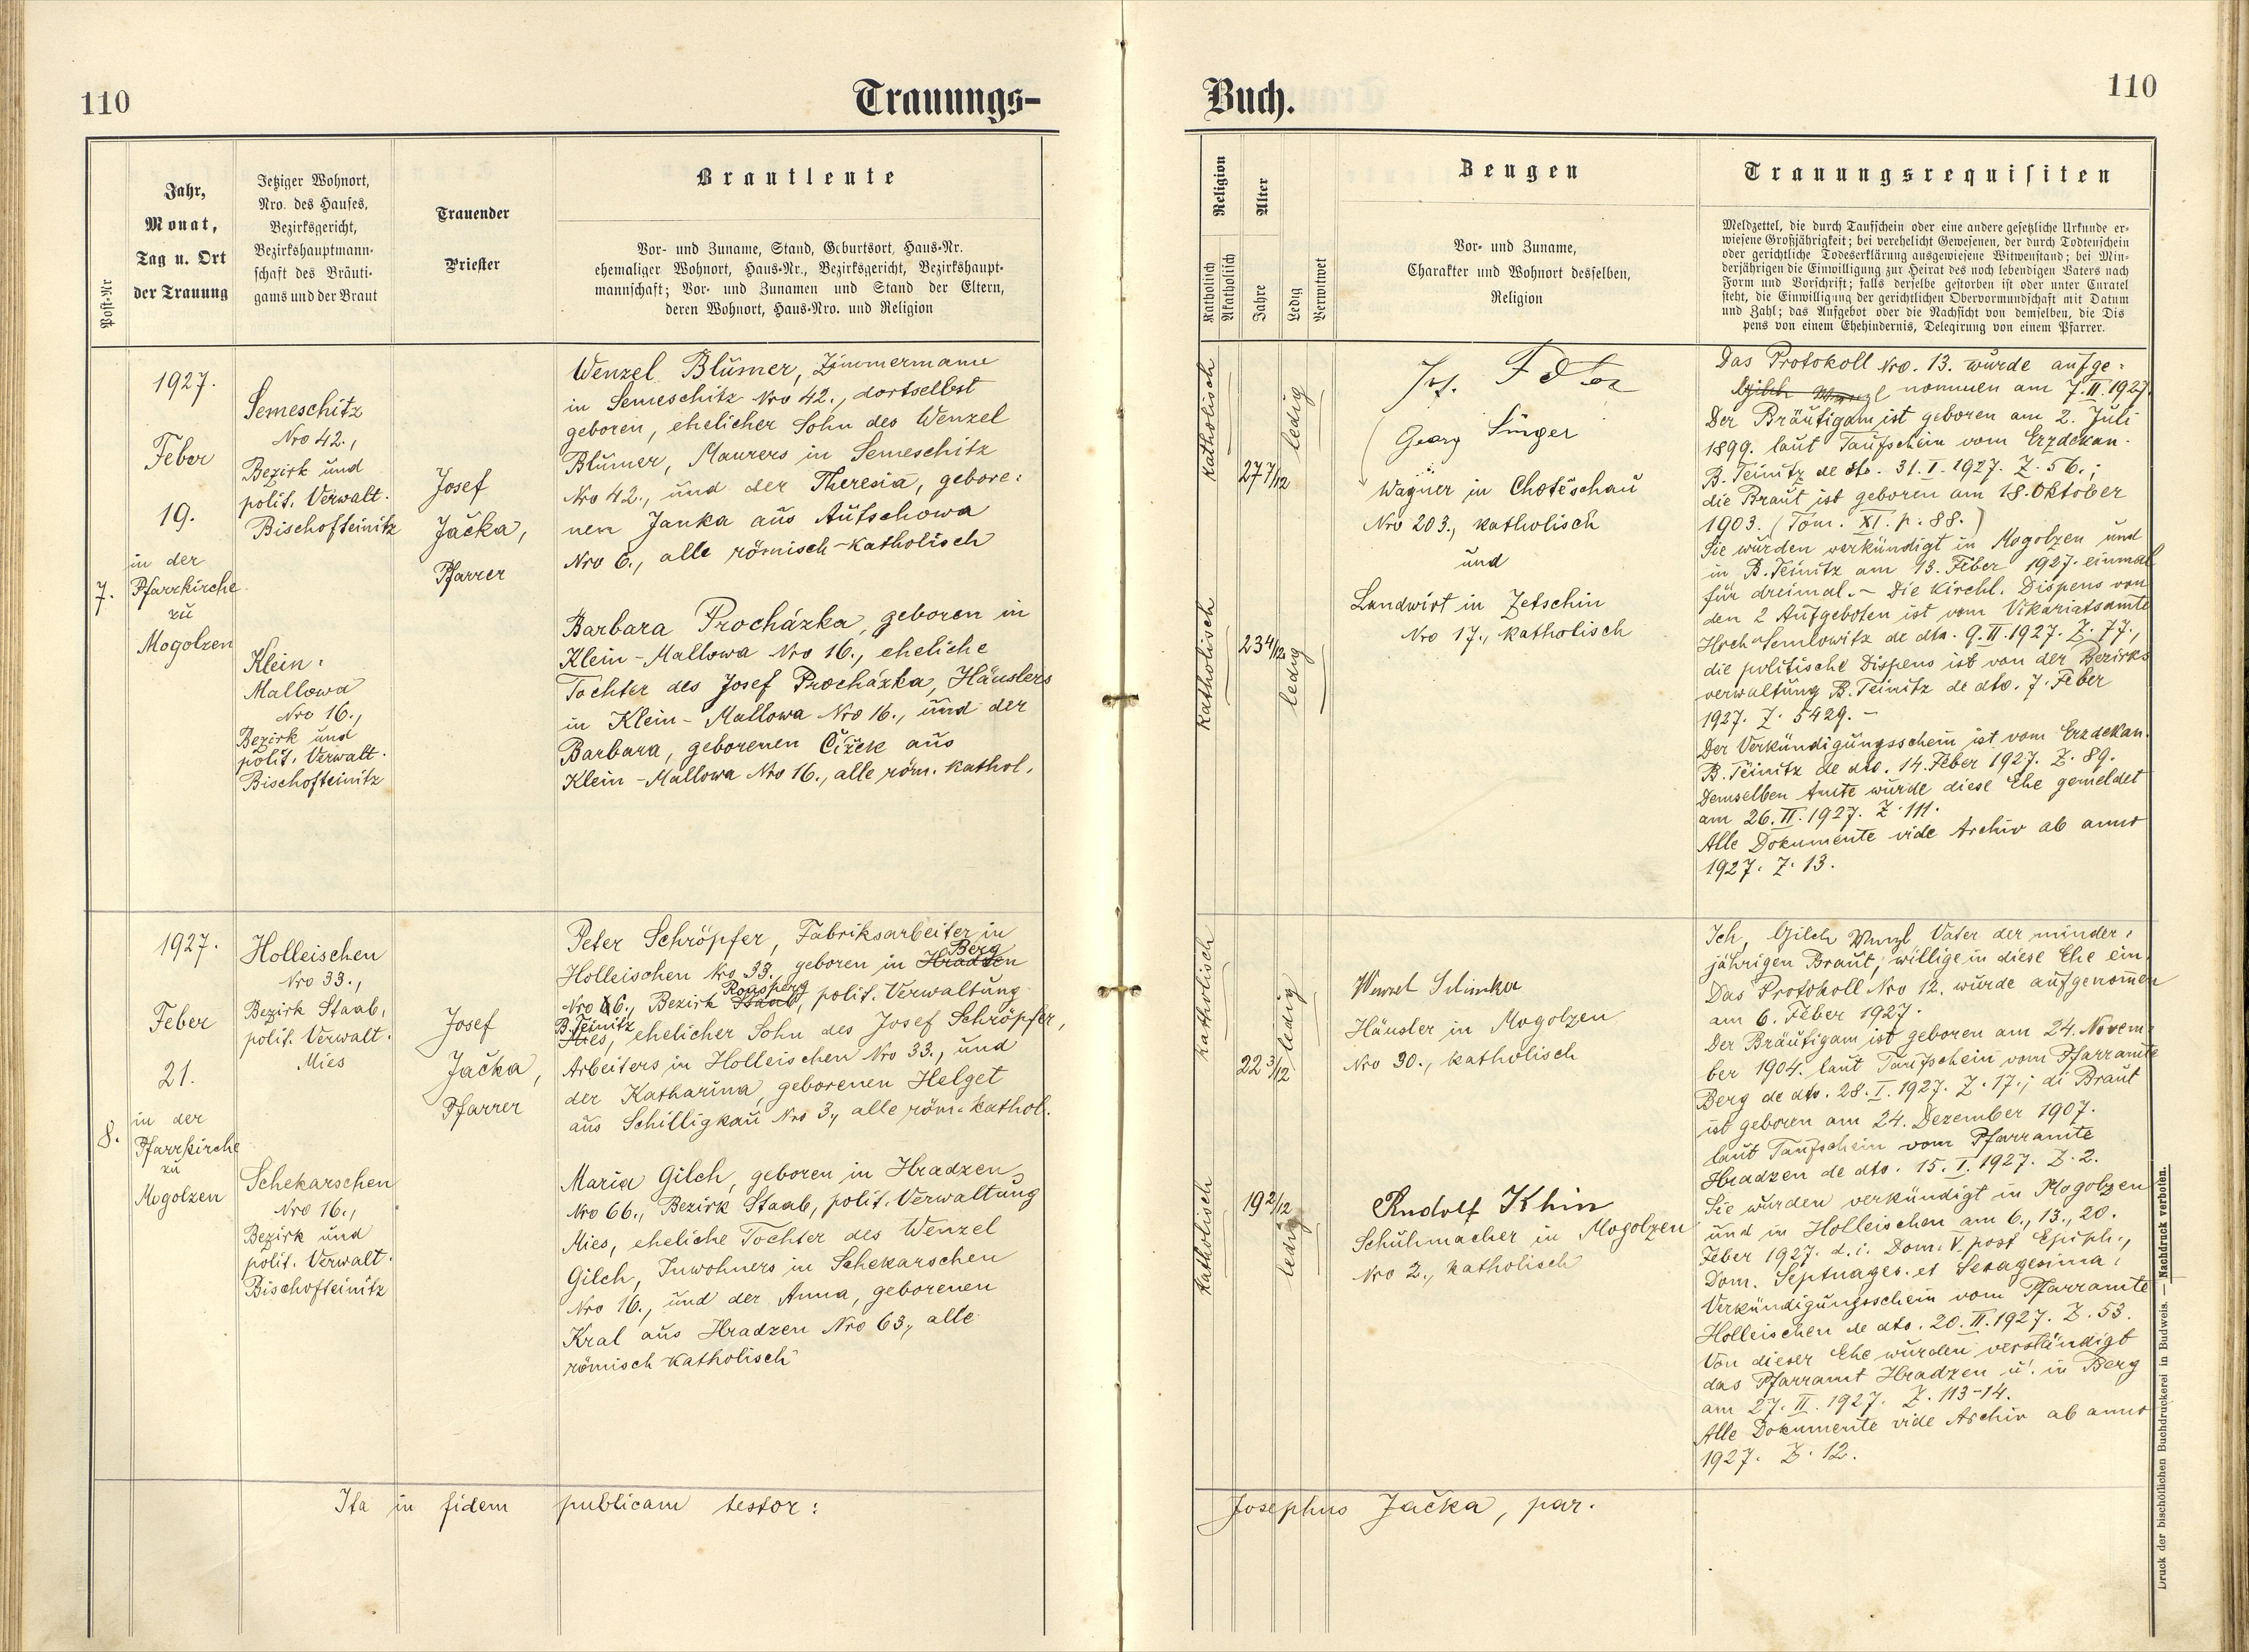 110
Trauungs-
Post-Nr
Jahr,
Monat,
Tag u. Ort
der Trauung
Jetziger Wohnort,
Nro. des Hauses,
Bezirksgericht,
Bezirkshauptmann-
schaft des Bräuti-
gams und der Braut
Trauender
Priester
Brautleute
Vor- und Zuname, Stand, Geburtsort, Haus-Nr.
ehemaliger Wohnort, Haus-Nr., Bezirksgericht, Bezirkshaupt-
mannschaft; Vor- und Zunamen und Stand der Eltern,
deren Wohnort, Haus-Nro. und Religion
7.
1927.
Feber
19.
in der
Pfarrkirche
zu
Mogolzen
Semeschitz
Nro 42.,
Bezirk und
polit. Verwalt.
Bischofteinitz
Klein-
Mallowa
Nro 16.,
Bezirk und
polit. Verwalt.
Bischofteinitz
Josef
Jačka,
Pfarrer
Wenzel Blumer, Zimmermann
in Semeschitz Nro 42., dortselbst
geboren, ehelicher Sohn des Wenzel
Blumer, Maurers in Semeschitz
Nro 42., und der Theresia, gebore:
nen Janka aus Autschowa
Nro 6., alle römisch-katholisch
Barbara Procházka, geboren in
Klein-Mallowa Nro 16., eheliche
Tochter des Josef Procházka, Häuslers
in Klein-Mallowa Nro 16., und der
Barbara, geborenen Čížek aus
Klein-Mallowa Nro 16., alle röm. kathol.
8.
1927.
Feber
21.
in der
Pfarrkirche
zu
Mogolzen
Holleischen
Nro 33.,
Bezirk Staab,
polit. Verwalt.
Mies
Schekarschen
Nro 16.,
Bezirk und
polit. Verwalt.
Bischofteinitz
Josef
Jačka,
Pfarrer
Peter Schröpfer, Fabriksarbeiter in
Berg
Holleischen Nro 33., geboren in Hradzen
Ronsperg
Nro 6., Bezirk Staab, polit. Verwaltung
B. Teinitz
Mies, ehelicher Sohn des Josef Schröpfer,
Arbeiters in Holleischen Nro 33., und
der Katharina, geborenen Helget
aus Schilligkau Nro 3., alle röm. kathol.
Maria Gilch, geboren in Hradzen
Nro 66., Bezirk Staab, polit. Verwaltung
Mies, eheliche Tochter des Wenzel
Gilch, Inwohners in Schekarschen
Nro 16., und der Anna, geborenen
Kral aus Hradzen Nro 63., alle
römisch-katholisch
Ita in fidem publicam testor:
Buch.
110
Religion
Katholisch
Akatholisch
Alter
Jahre
Ledig
Verwitwet
Zeugen
Vor- und Zuname,
Charakter und Wohnort desselben,
Religion
Trauungsrequisiten
Meldzettel, die durch Taufschein oder eine andere gesetzliche Urkunde er-
wiesene Großjährigkeit; bei verehelicht Gewesenen, der durch Todtenschein
oder gerichtliche Todeserklärung ausgewiesene Witwenstand; bei Min-
derjährigen die Einwilligung zur Heirat des noch lebendigen Vaters nach
Form und Vorschrift; falls derselbe gestorben ist oder unter Curatel
steht, die Einwilligung der gerichtlichen Obervormundschaft mit Datum
und Zahl; das Aufgebot oder die Nachsicht von demselben, die Dis
pens von einem Ehehindernis, Delegirung von einem Pfarrer.
katholisch
27 7/12
ledig
katholisch
23 4/12
ledig
Jos.
Georg Singer
Wagner in Choteschau
Nro 203., katholisch
und
Landwirt in Zetschin
Nro 17., katholisch
Das Protokoll Nro. 13. wurde aufge:
Gilch Wenzl nommen am 7.II.1927.
Der Bräutigam ist geboren am 2. Juli
1899. laut Taufschein vom Erzdekan.
B. Teinitz de dto. 31.I.1927. Z. 56.;
die Braut ist geboren am 18. Oktober
1903. (Tom. XI. p. 88.)
Sie wurden verkündigt in Mogolzen und
in B. Teinitz am 13. Feber 1927. einmal
für dreimal. – Die kirchl. Dispens von
den 2 Aufgeboten ist vom Vikariatsamte
Hoch-Semlowitz de dto. 9.II.1927. Z. 77.,
die politische Dispens ist von der Bezirks
verwaltung B. Teinitz de dto. 7. Feber
1927. Z. 5429. –
Der Verkündigungsschein ist vom Erzdekan.
B. Teinitz de dto. 14. Feber 1927. Z. 89.
Demselben Amte wurde diese Ehe gemeldet
am 26.II.1927. Z. 111.
Alle Dokumente vide Archiv ab anno
1927. Z. 13.
katholisch
22 3/12
ledig
katholisch
19 2/12
ledig
Wenzel
Häusler in Mogolzen
Nro 30., katholisch
Rudolf Khin
Schuhmacher in Mogolzen
Nro 2., katholisch
Ich, Gilch Wenzl Vater der minder:
jährigen Braut, willige in diese Ehe ein.
Das Protokoll Nro 12. wurde aufgenommen
am 6. Feber 1927.
Der Bräutigam ist geboren am 24. Novem-
ber 1904. laut Taufschein vom Pfarramte
Berg de dto. 28.I.1927. Z. 17.; di Braut
ist geboren am 24. Dezember 1907.
laut Taufschein vom Pfarramte
Hradzen de dto. 15.I.1927. Z. 2.
Sie wurden verkündigt in Mogolzen
und in Holleischen am 6., 13., 20.
Feber 1927. d. i. Dom. V. post Epiph.,
Dom. Septuages. et Sexagesima.
Verkündigungsschein vom Pfarramte
Holleischen de dto. 20.II.1927. Z. 53.
Von dieser Ehe wurden verständigt
das Pfarramt Hradzen u. in Berg
am 27.II.1927. Z. 113-14.
Alle Dokumente vide Archiv ab anno
1927. Z. 12.
Josephus Jačka, par.
Druck der bischöflichen Buchdruckerei in Budweis. — Nachdruck verboten.